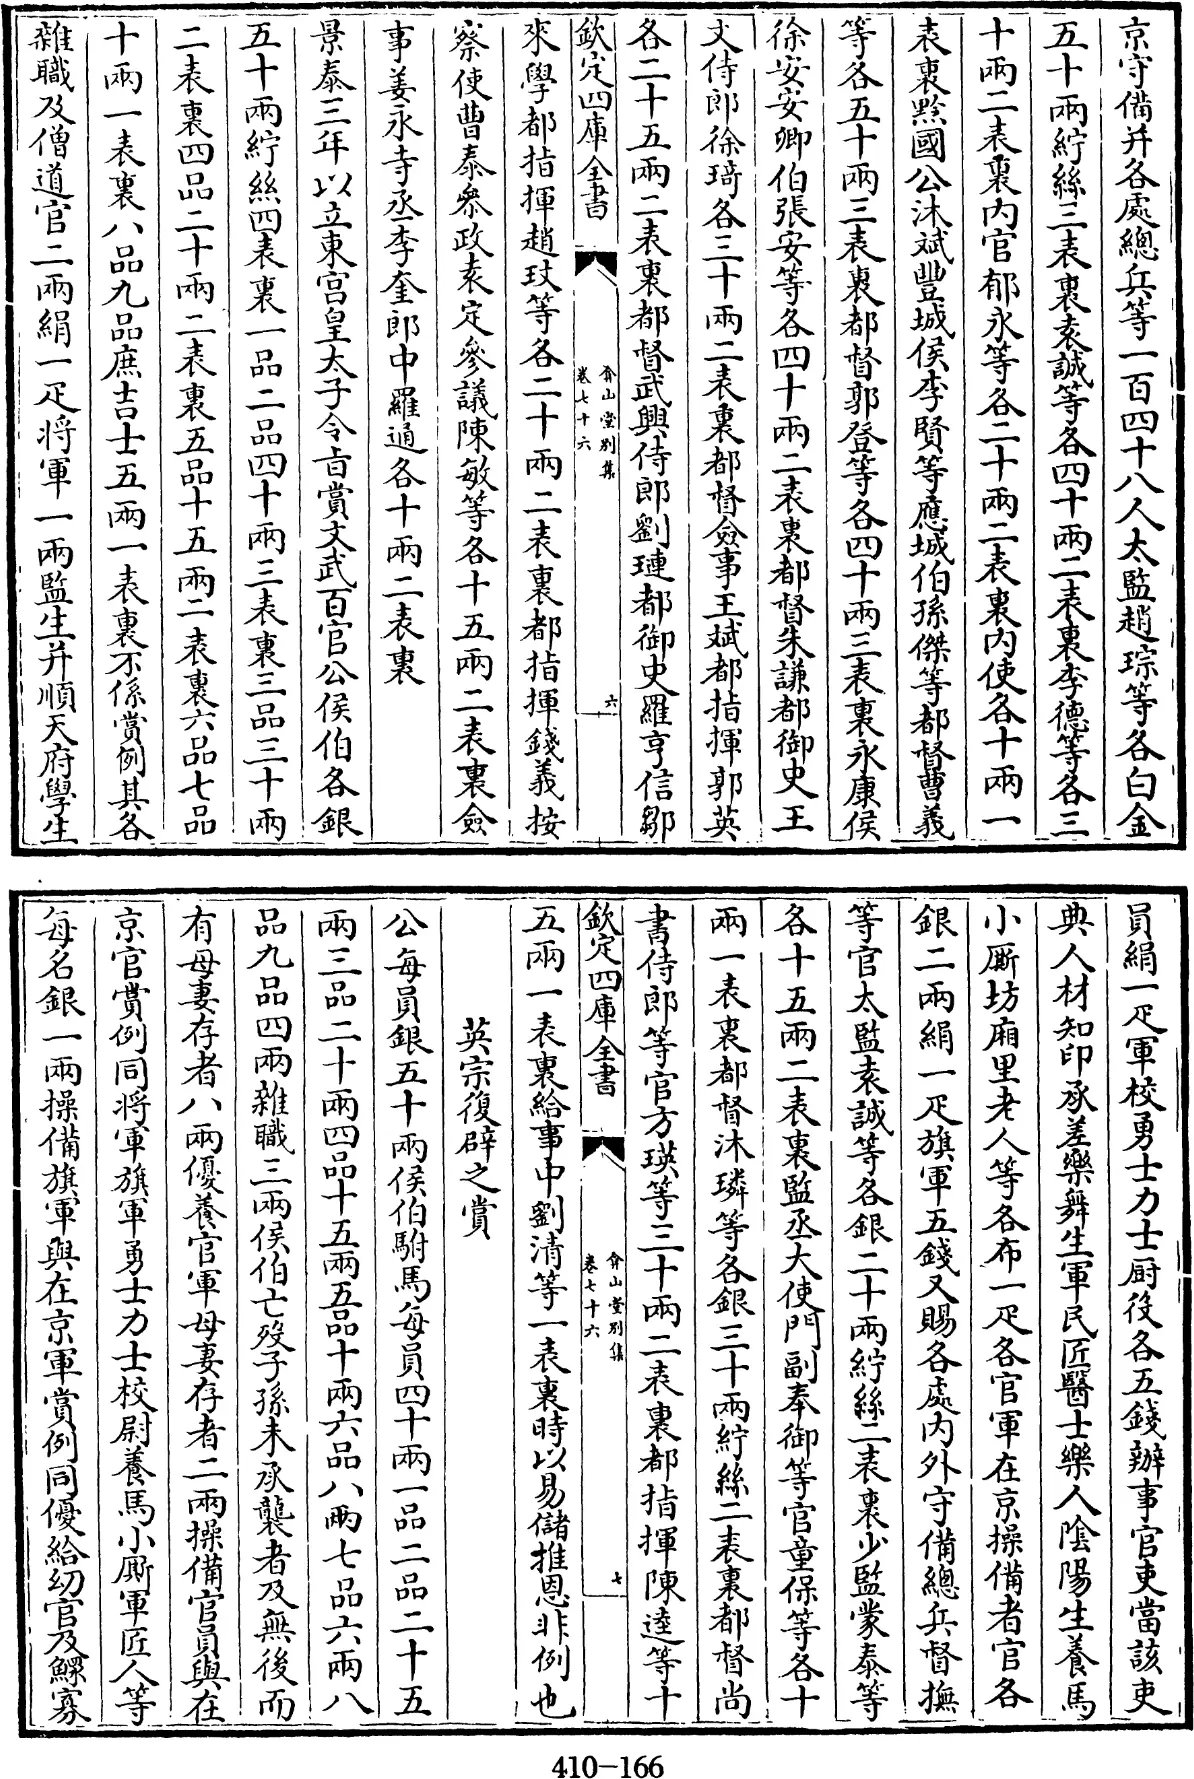 京守備并各處總兵等一百四十八人太監趙琮等各白金
五十兩紵絲三表裏袁誠等各四十兩二表裏李德等各三
十兩二表裏内官郁永等各二十兩二表裏内使各十兩一
表裏黔國公沐斌豐城侯李賢等應城伯孫傑等都督曹義
等各五十兩三表裏都督郭登等各四十兩三表裏永康侯
徐安安鄉伯張安等各四十兩二表裏都督朱謙都御史王
文侍郎徐琦各三十兩二表裏都督僉事王斌都指揮郭英
各二十五兩二表裏都督武興侍郎劉璉都御史羅亨信鄒
欽定四庫全書
弇山堂别集
卷七十六
六
來學都指揮趙玟等各二十兩二表裏都指揮錢義按
察使曹泰叅政袁定參議陳敏等各十五兩二表裏僉
事姜永寺丞李奎郎中羅通各十兩二表裏
景泰三年以立東宫皇太子令㫖賞文武百官公侯伯各銀
五十兩紵絲四表裏一品二品四十兩三表裏三品三十兩
二表裏四品二十兩二表裏五品十五兩二表裏六品七品
十兩一表裏八品九品庶吉士五兩一表裏不係賞例其各
雜職及僧道官二兩絹一疋将軍一兩監生并順天府學生
員絹一疋軍校勇士力士厨役各五錢辦事官吏當該吏
典人材知印承差樂舞生軍民匠醫士樂人隂陽生養馬
小厮坊廂里老人等各布一疋各官軍在京操備者官各
銀二兩絹一疋旗軍五錢又賜各處内外守備總兵督撫
等官太監袁誠等各銀二十兩紵絲二表裏少監蒙泰等
各十五兩二表裏監丞大使門副奉御等官童保等各十
兩一表裏都督沐璘等各銀三十兩紵絲二表裏都督尚
書侍郎等官方瑛等二十兩二表裏都指揮陳逵等十
欽定四庫全書
弇山堂别集
卷七十六
七
五兩一表裏給事中劉清等一表裏時以易儲推恩非例也
英宗復辟之賞
公每員銀五十兩侯伯駙馬每員四十兩一品二品二十五
兩三品二十兩四品十五兩五品十兩六品八兩七品六兩八
品九品四兩雜職三兩侯伯亡殁子孫未承襲者及無後而
有母妻存者八兩優養官軍母妻存者二兩操備官員與在
京官賞例同将軍旗軍勇士力士校尉養馬小厮軍匠人等
每名銀一兩操備旗軍與在京軍賞例同優給幼官及鰥寡
410-166